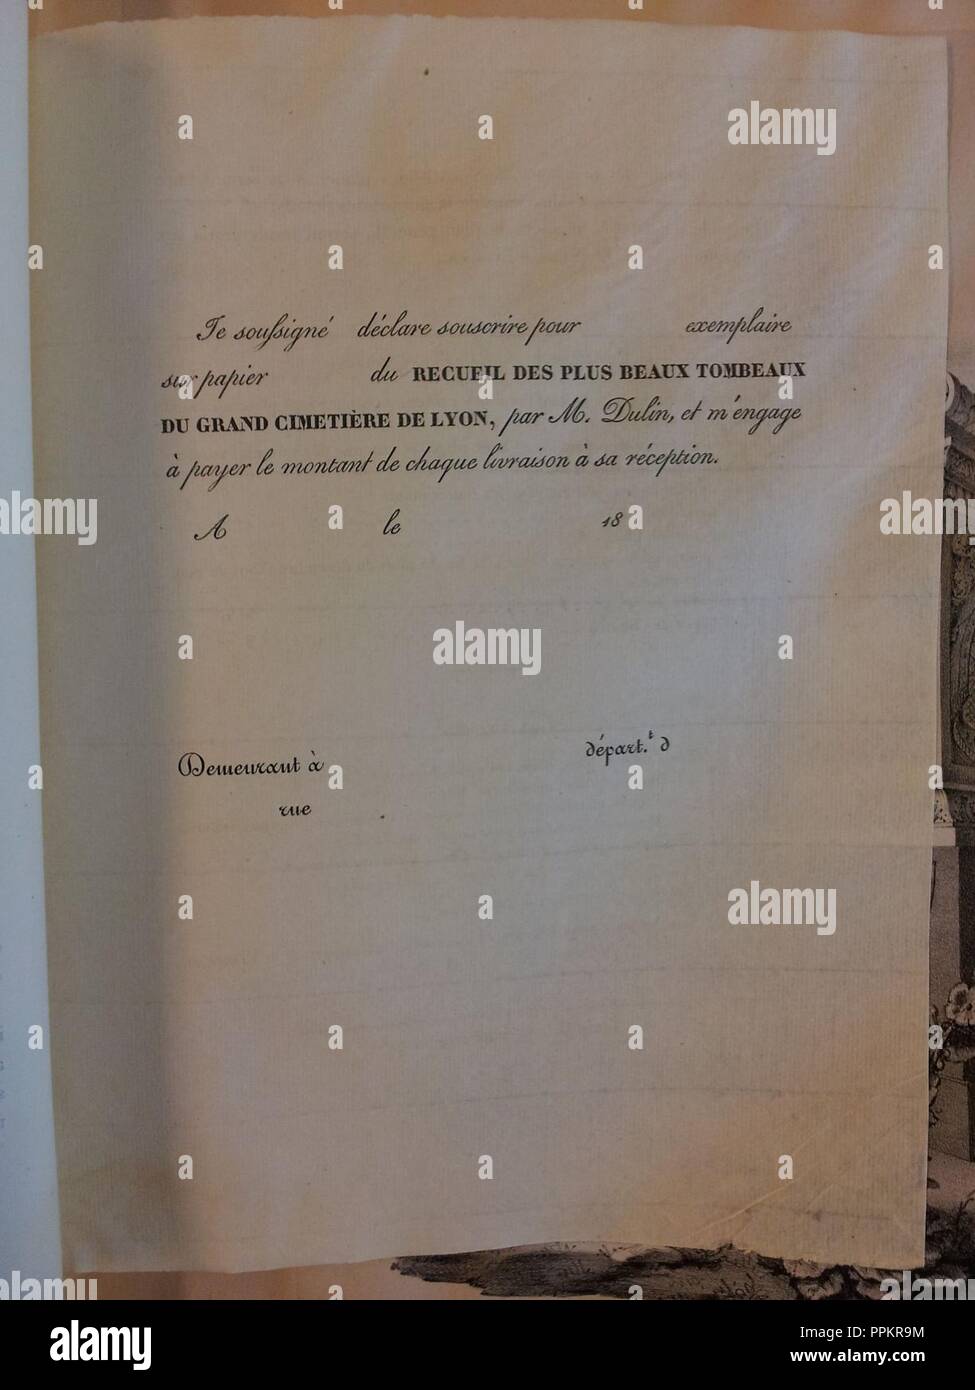 Je soussigné déclare souscrire pour exemplaire
sur papier du RECUEIL DES PLUS BEAUX TOMBEAUX
DU GRAND CIMETIÈRE DE LYON, par M. Dulin, et m'engage
à payer le montant de chaque livraison à sa réception.
A le 18
Demeurant à départ.t d
rue
alamy
Image ID: PPKR9M
www.alamy.com